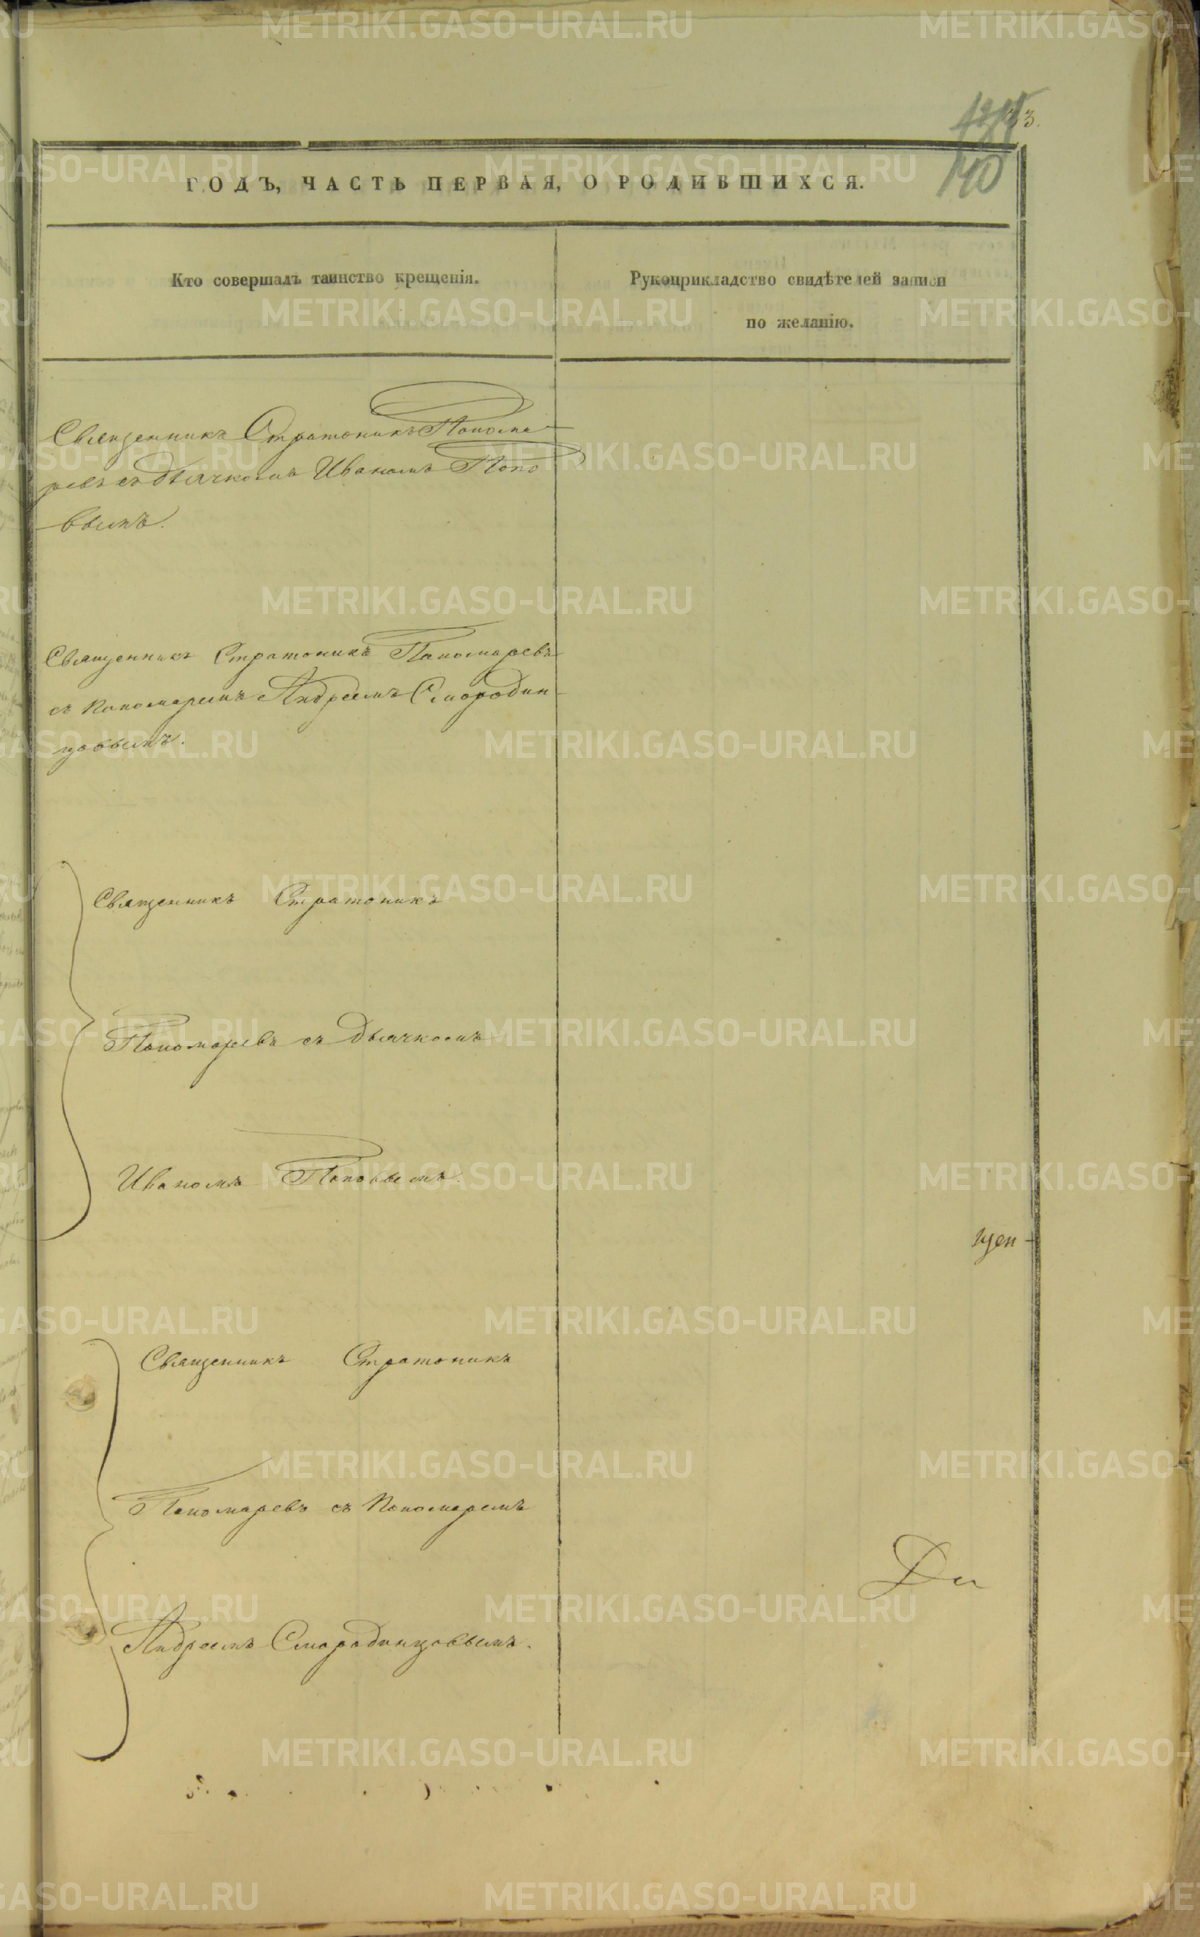 33.
140
ГОДЪ, ЧАСТЬ ПЕРВАЯ, О РОДИВШИХСЯ.
Кто совершалъ таинство крещенія.
Рукоприкладство свидѣтелей записи
по желанію.
Священникъ Стратоникъ Понома-
ревъ съ Дьячкомъ Иваномъ Попо
вымъ.
Священникъ Стратоникъ Пономаревъ
съ Пономаремъ Андреемъ Смородин-
цовымъ.
Священникъ Стратоникъ
Пономаревъ съ Дьячкомъ
Иваномъ Поповымъ.
Священникъ Стратоникъ
Пономаревъ съ Пономаремъ
Андреемъ Смородинцовымъ.
щен-
METRIKI.GASO-URAL.RU